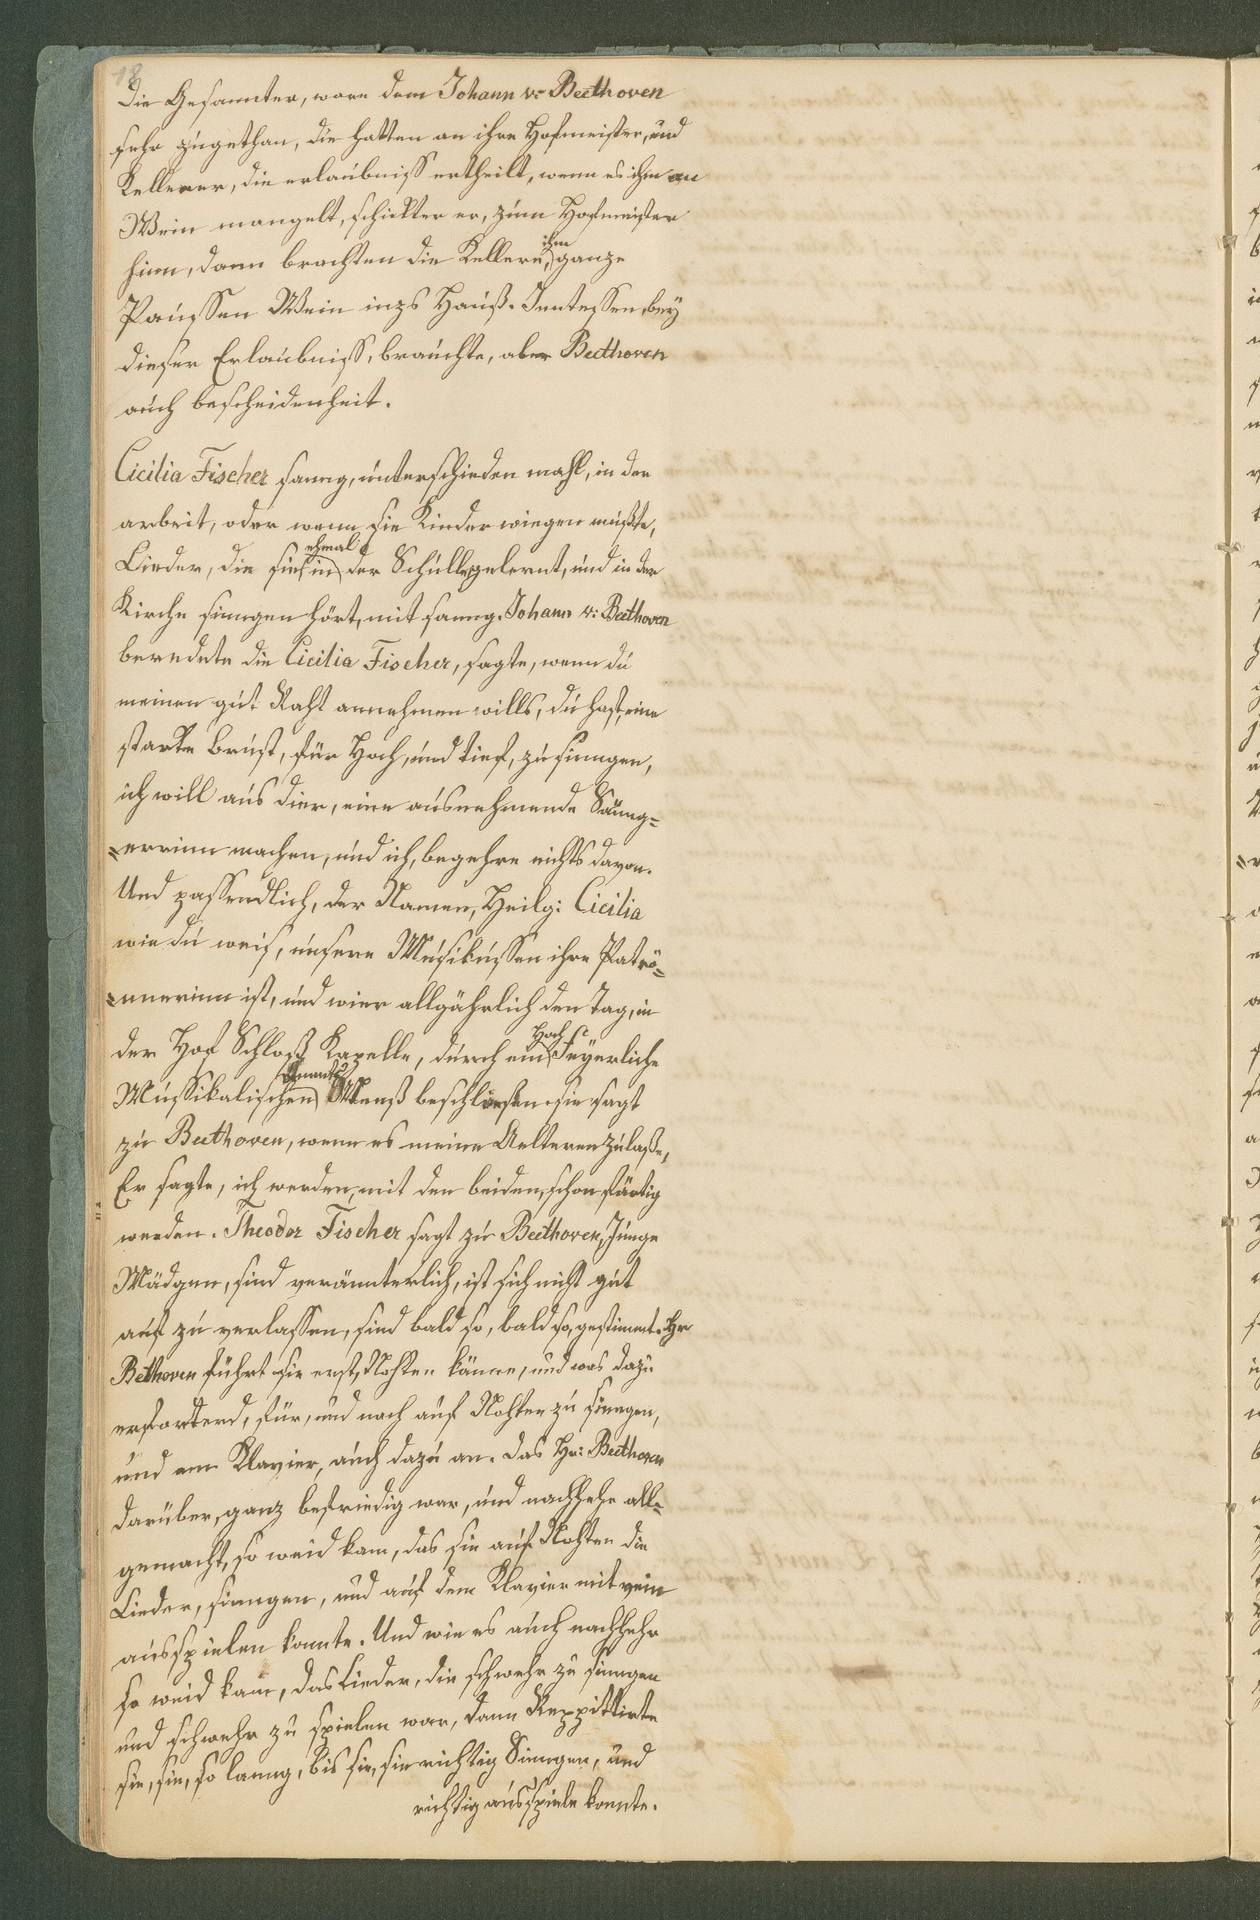 18
Die Gesannter, ware dem Johann v: Beethoven
sehr zugethan, die hatten an ihre Hofmeister, und
Kellerer, die erlaubniss ertheilt, wenn es ihm an
Wein mangelt, schickter er, zum Hofmeister
hinn, dann brachten die Kellere, ihm ganze
Paussen Wein inzs Hauß. Inntessen, bey
dieser Erlaubniss, brauchte, aber Beethoven
auch bescheidenheit.
Cicilia Fischer sanng, unterschieden mahl, in der
arbeit, oder wenn sie Kinder wiegen mußte,
Lieder, die sie ehmal in der Schulle gelernt, und in der
Kirche sinngen hört, mit sanng. Johann v: Beethoven
beredete die Cicilia Fischer, sagte, wenn du
meinen gut Raht annehmen wills, du hast, eine
starke Brust, für Hoch, und tief, zu sinngen,
ich will aus dier, eine ausnehmende Säng=
=errinn machen, und ich, begehre nichts davon.
Und passendlich, der Namen, Heilg: Cicilia
wie du weis, unsere Musikussen ihre Patrö=
=nnerinn ist, und wier allgährlich den Tag, in
der Hof Schloß Kapelle, durch ein Hoch Feyerliche
Mussikalischen Menß beschliesen. sie sagt
zu Beethoven, wenn es meine Aelteren zulaße,
Er sagte, ich werden, mit den beiden, schon färtig
werden. Theodor Fischer sagt zu Beethoven, Junge
Mädgen, sind verännterlich, ist sich nicht gut
auf zu verlassen, sind bald so, bald so, gestimmt. Hr
Bethoven führt sie erst, Nohten känne, und was dazu
erforterd, für, und nach auf Nohten zu sinngen,
und am Klavier, auch dazu an. Das Hr: Beethoven
darüber, ganz befriedig war, und nachhehr all=
gemacht, so weid kam, das sie auf Nohten die
Lieder, sinngen, und auf dem Klavier mit rein
ausspielen konnte. Und wie es auch nachhehr
so weid kam, das Lieder, die schwehr zu sinngen
und schwehr zu spielen war, dann Reppittirte
sie, sie, so lanng, bis sie, sie richtig Sinngen, und
richtig ausspiele konnte.